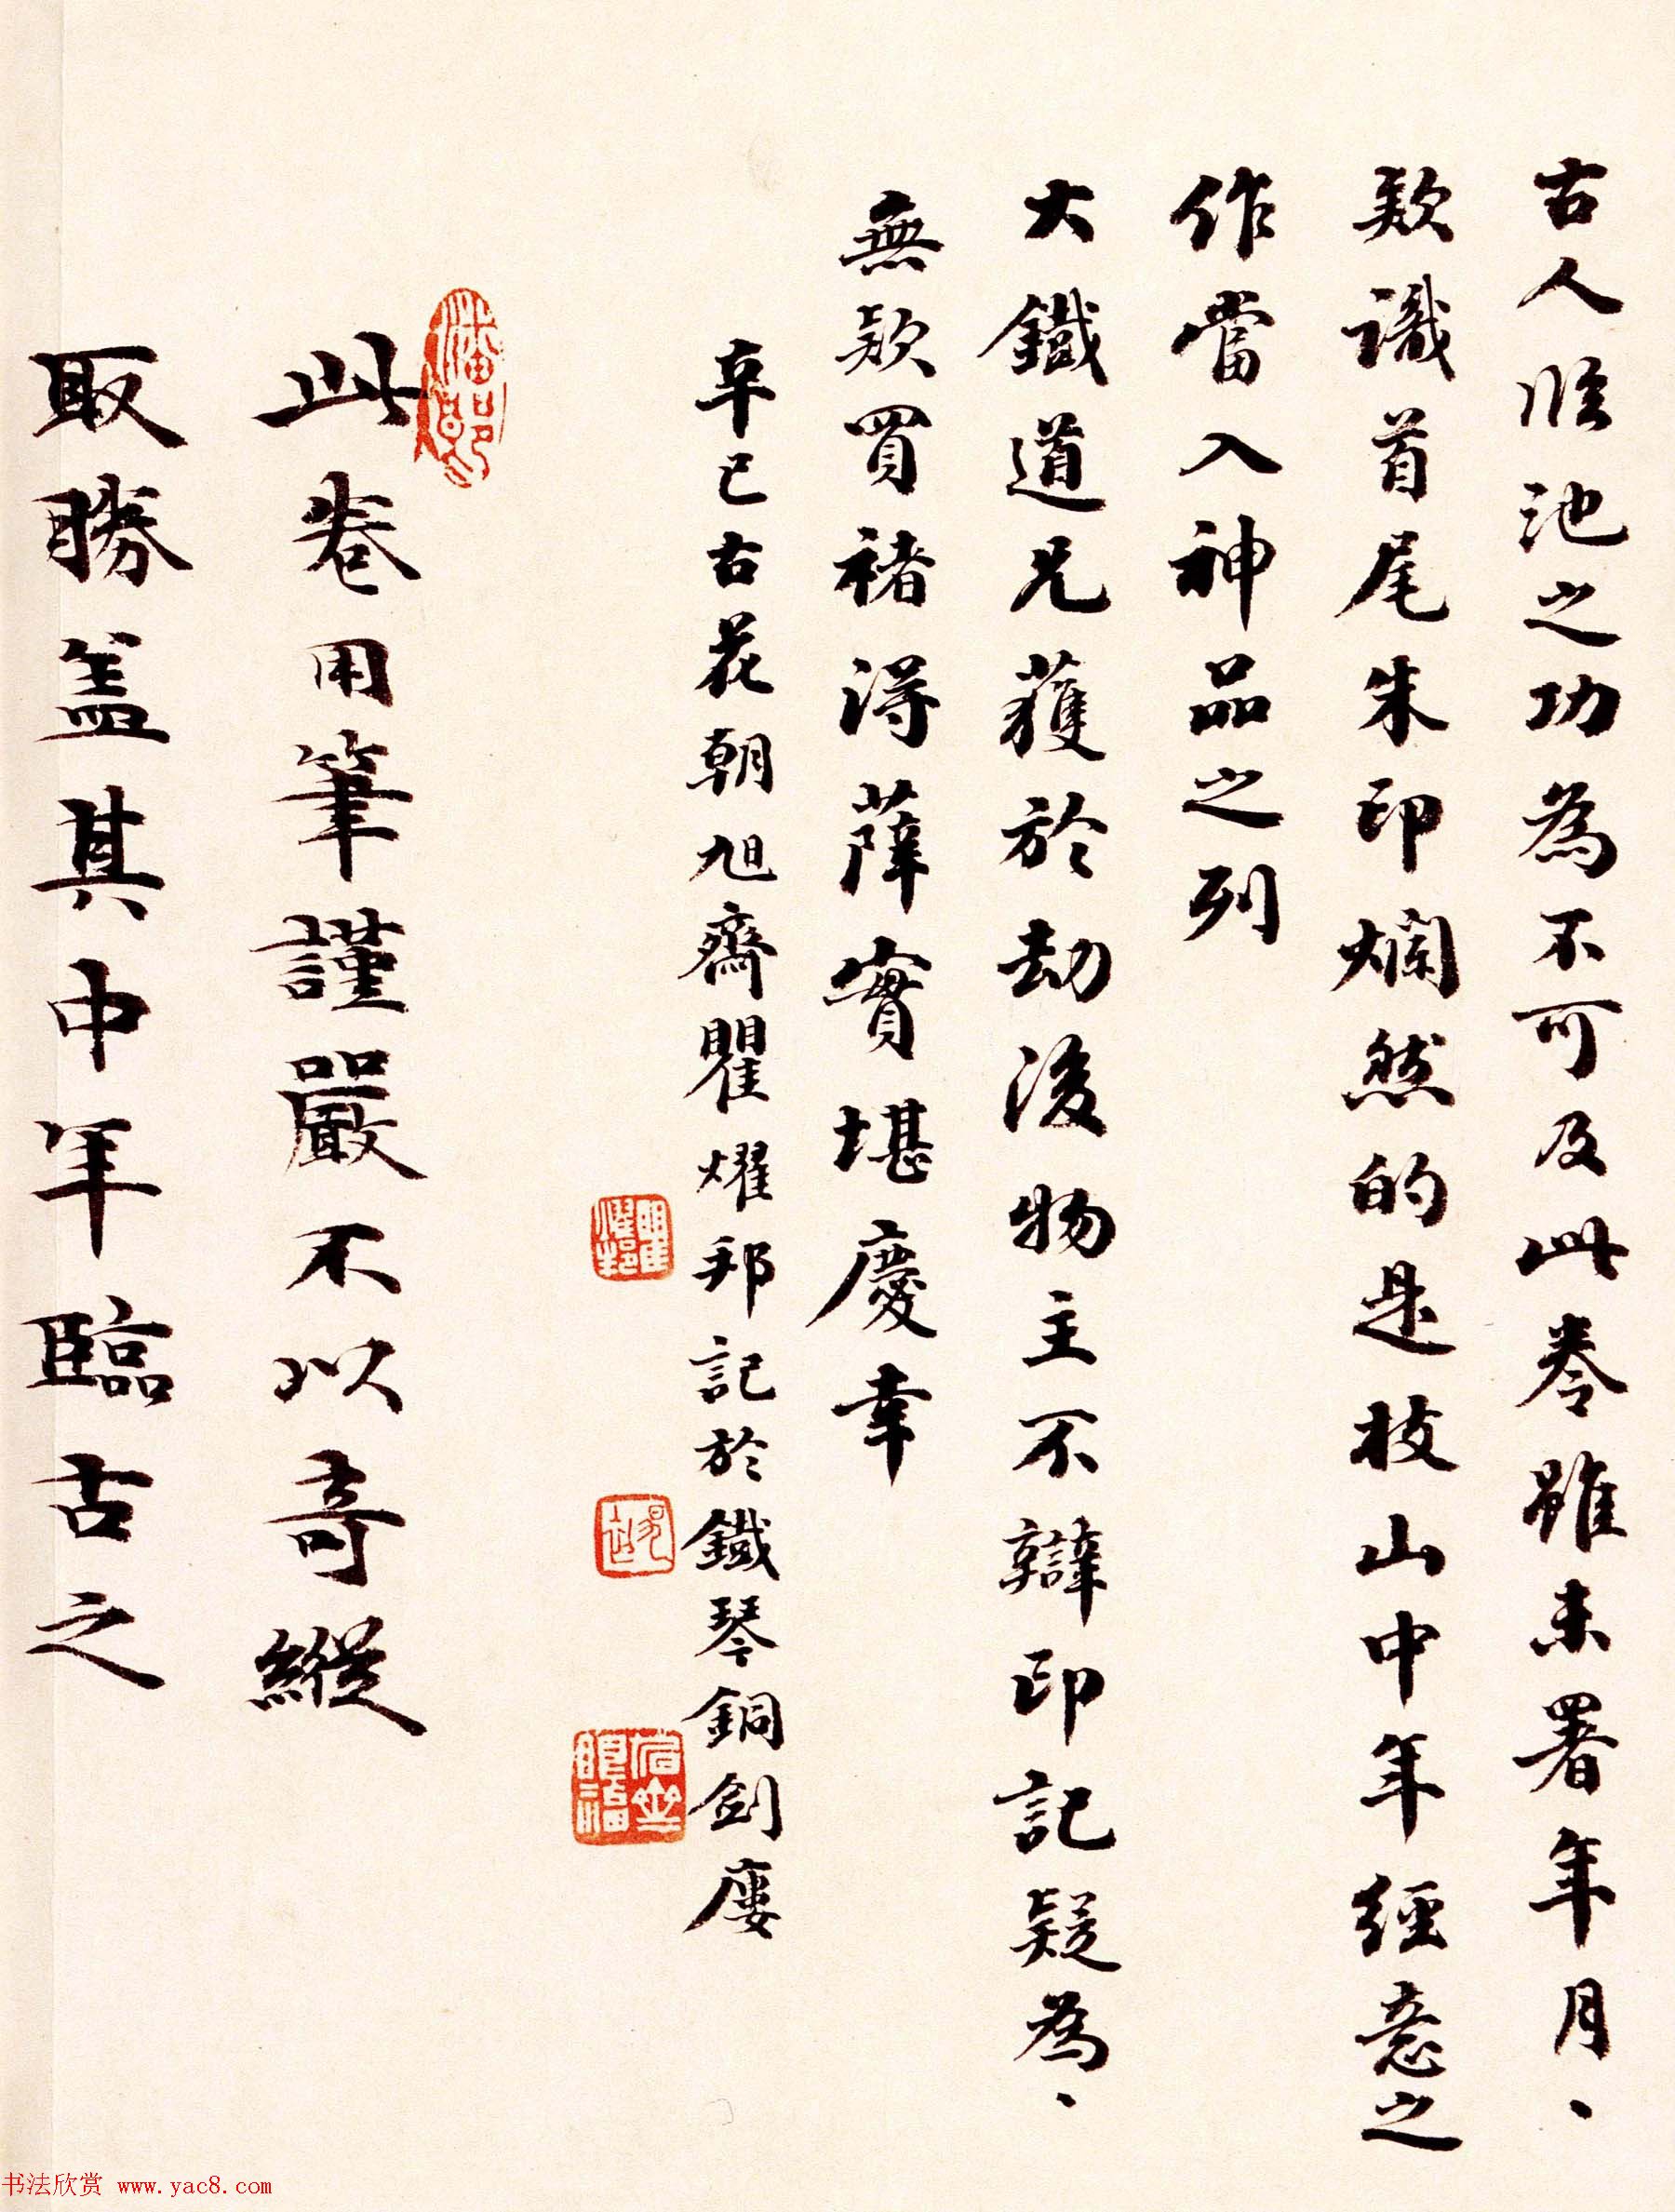 古人臨池之功為不可及此卷雖未署年月、
欵識首尾朱印爛然的是枝山中年經意之
作當入神品之列
大鐵道兄獲於劫後物主不辯印記疑為、
無欵買褚得薛實堪慶幸
辛巳古花朝旭齋瞿燿邦記於鐵琴銅劍廔
瞿燿邦
潘郎
此卷用筆謹嚴不以奇縱
取勝蓋其中年臨古之
书法欣赏 www.yac8.com